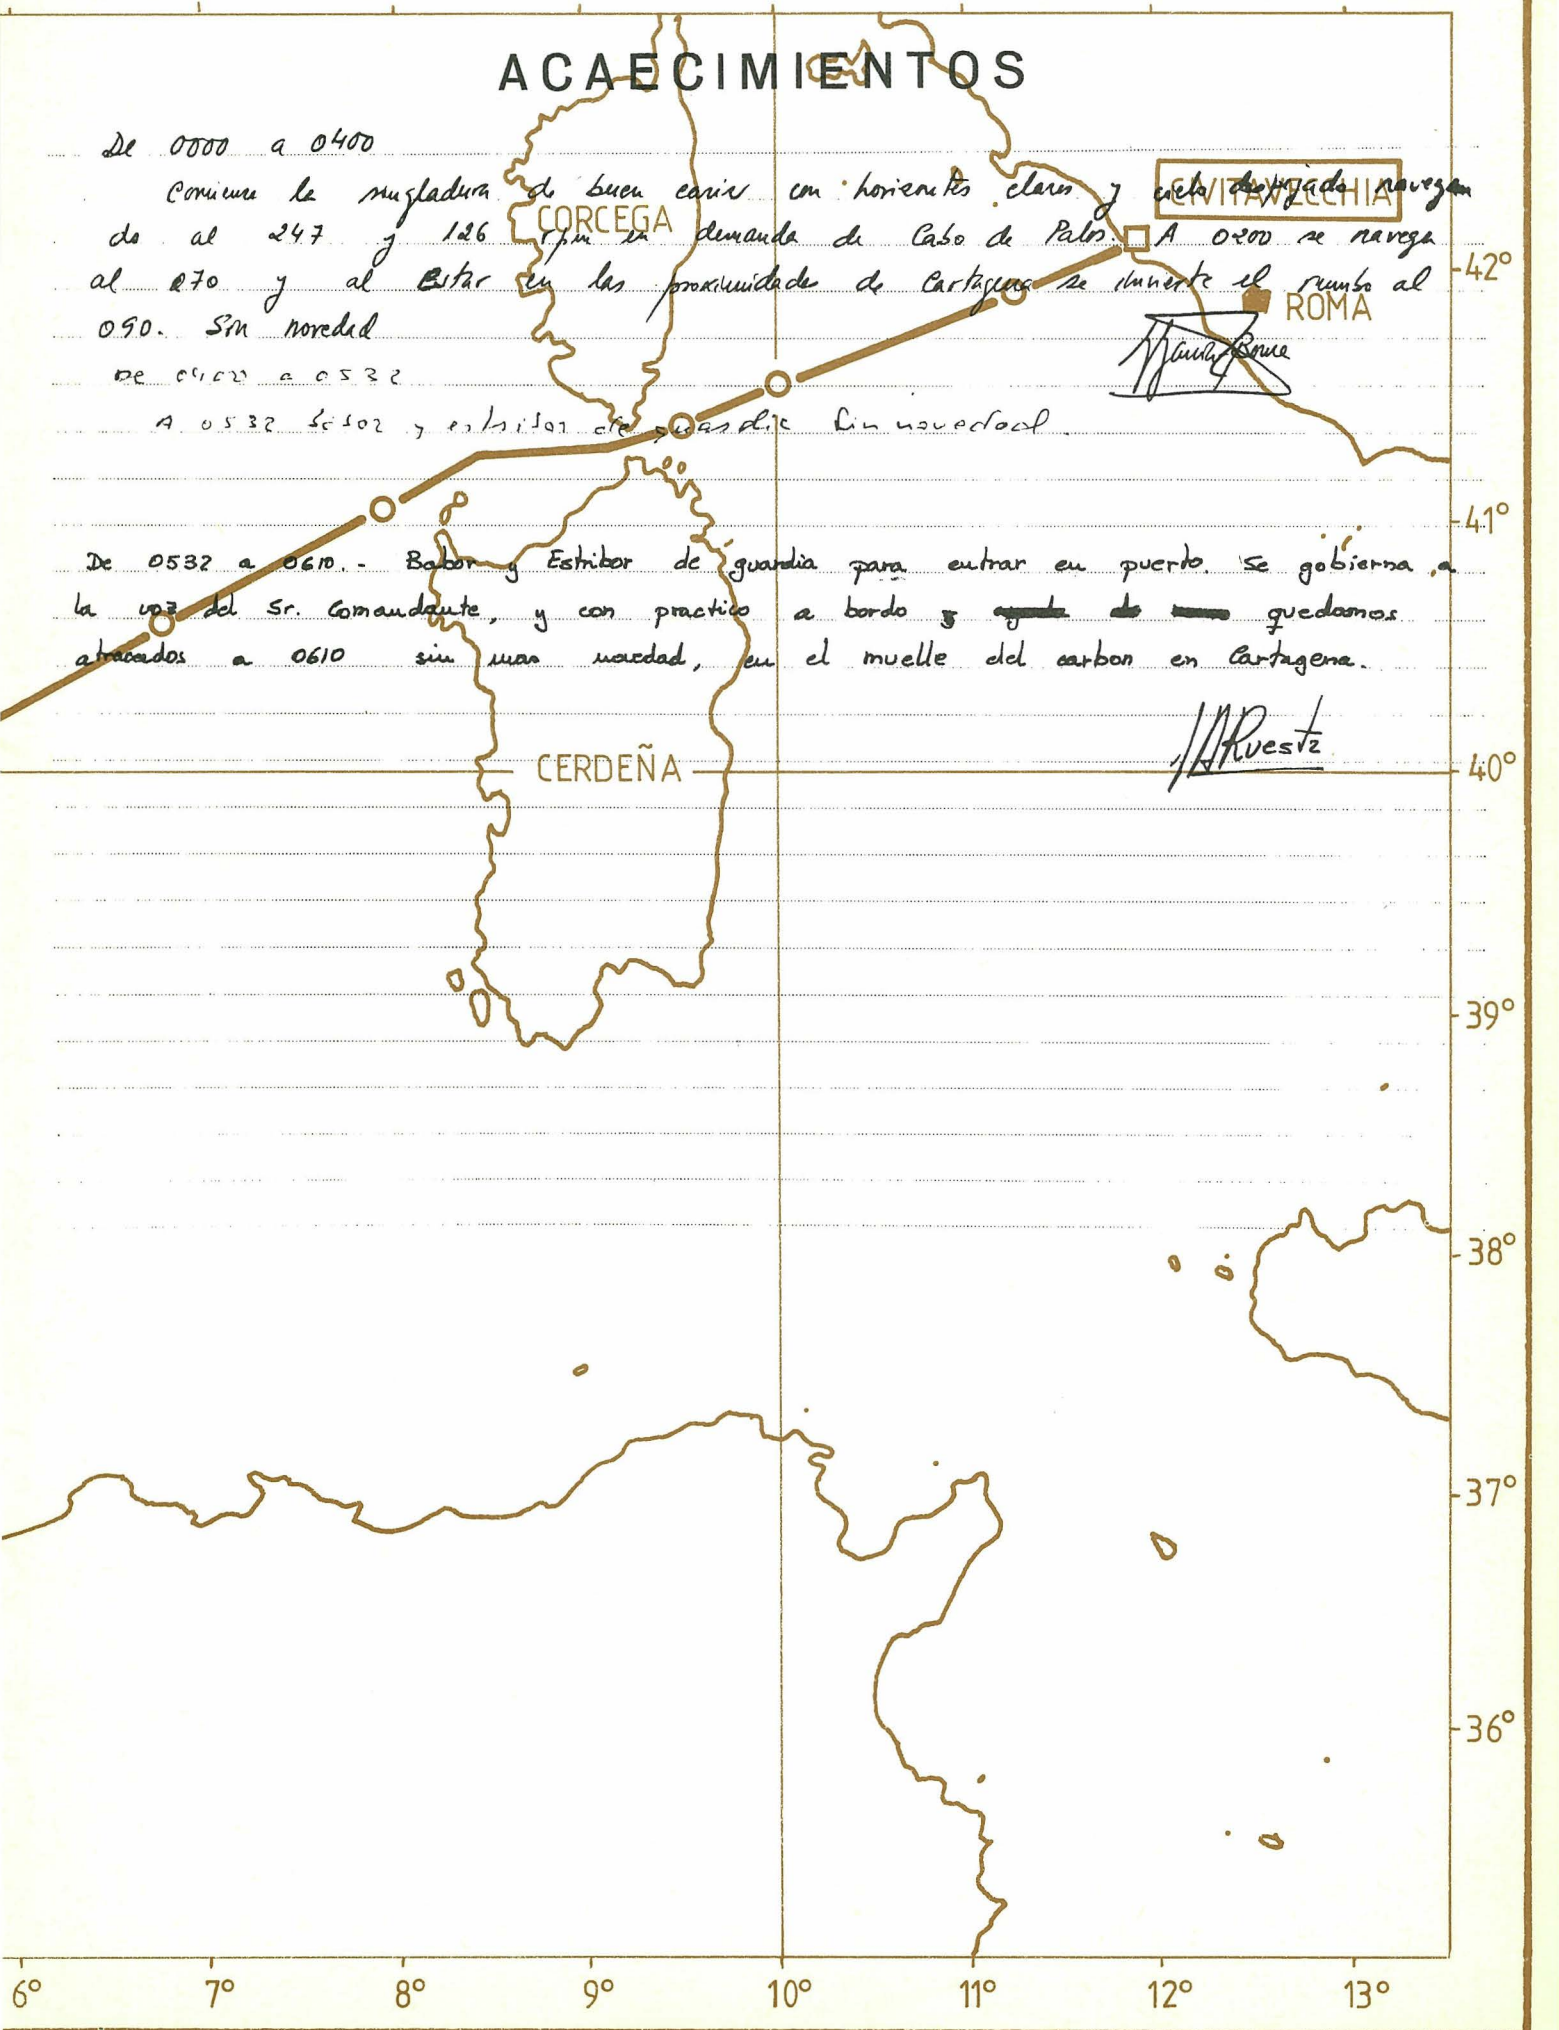 ACAECIMIENTOS
De 0000 a 0400
Comienza la singladura de buen cariz con horizontes claros y cielo despejado navegan
do al 247 y 126 rpm en demanda de Cabo de Palos. A 0200 se navega
al 270 y al Estar en las proximidades de Cartagena se invierte el rumbo al
090. Sin novedad
De 0400 a 0532
A 0532 babor y estribor de guardia Sin novedad.
De 0532 a 0610.- Babor y Estribor de guardia para entrar en puerto. Se gobierna a
la voz del Sr. Comandante, y con practico a bordo y quedamos
atracados a 0610 sin mas novedad, en el muelle del carbon en Cartagena.
CORCEGA
CIVITAVECCHIA
ROMA
CERDEÑA
42°
41°
40°
39°
38°
37°
36°
6° 7° 8° 9° 10° 11° 12° 13°